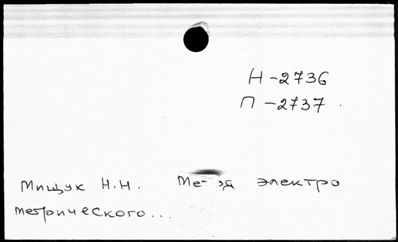 Н-2736
П-2737.
Мищук Н.Н. электро
метрического...